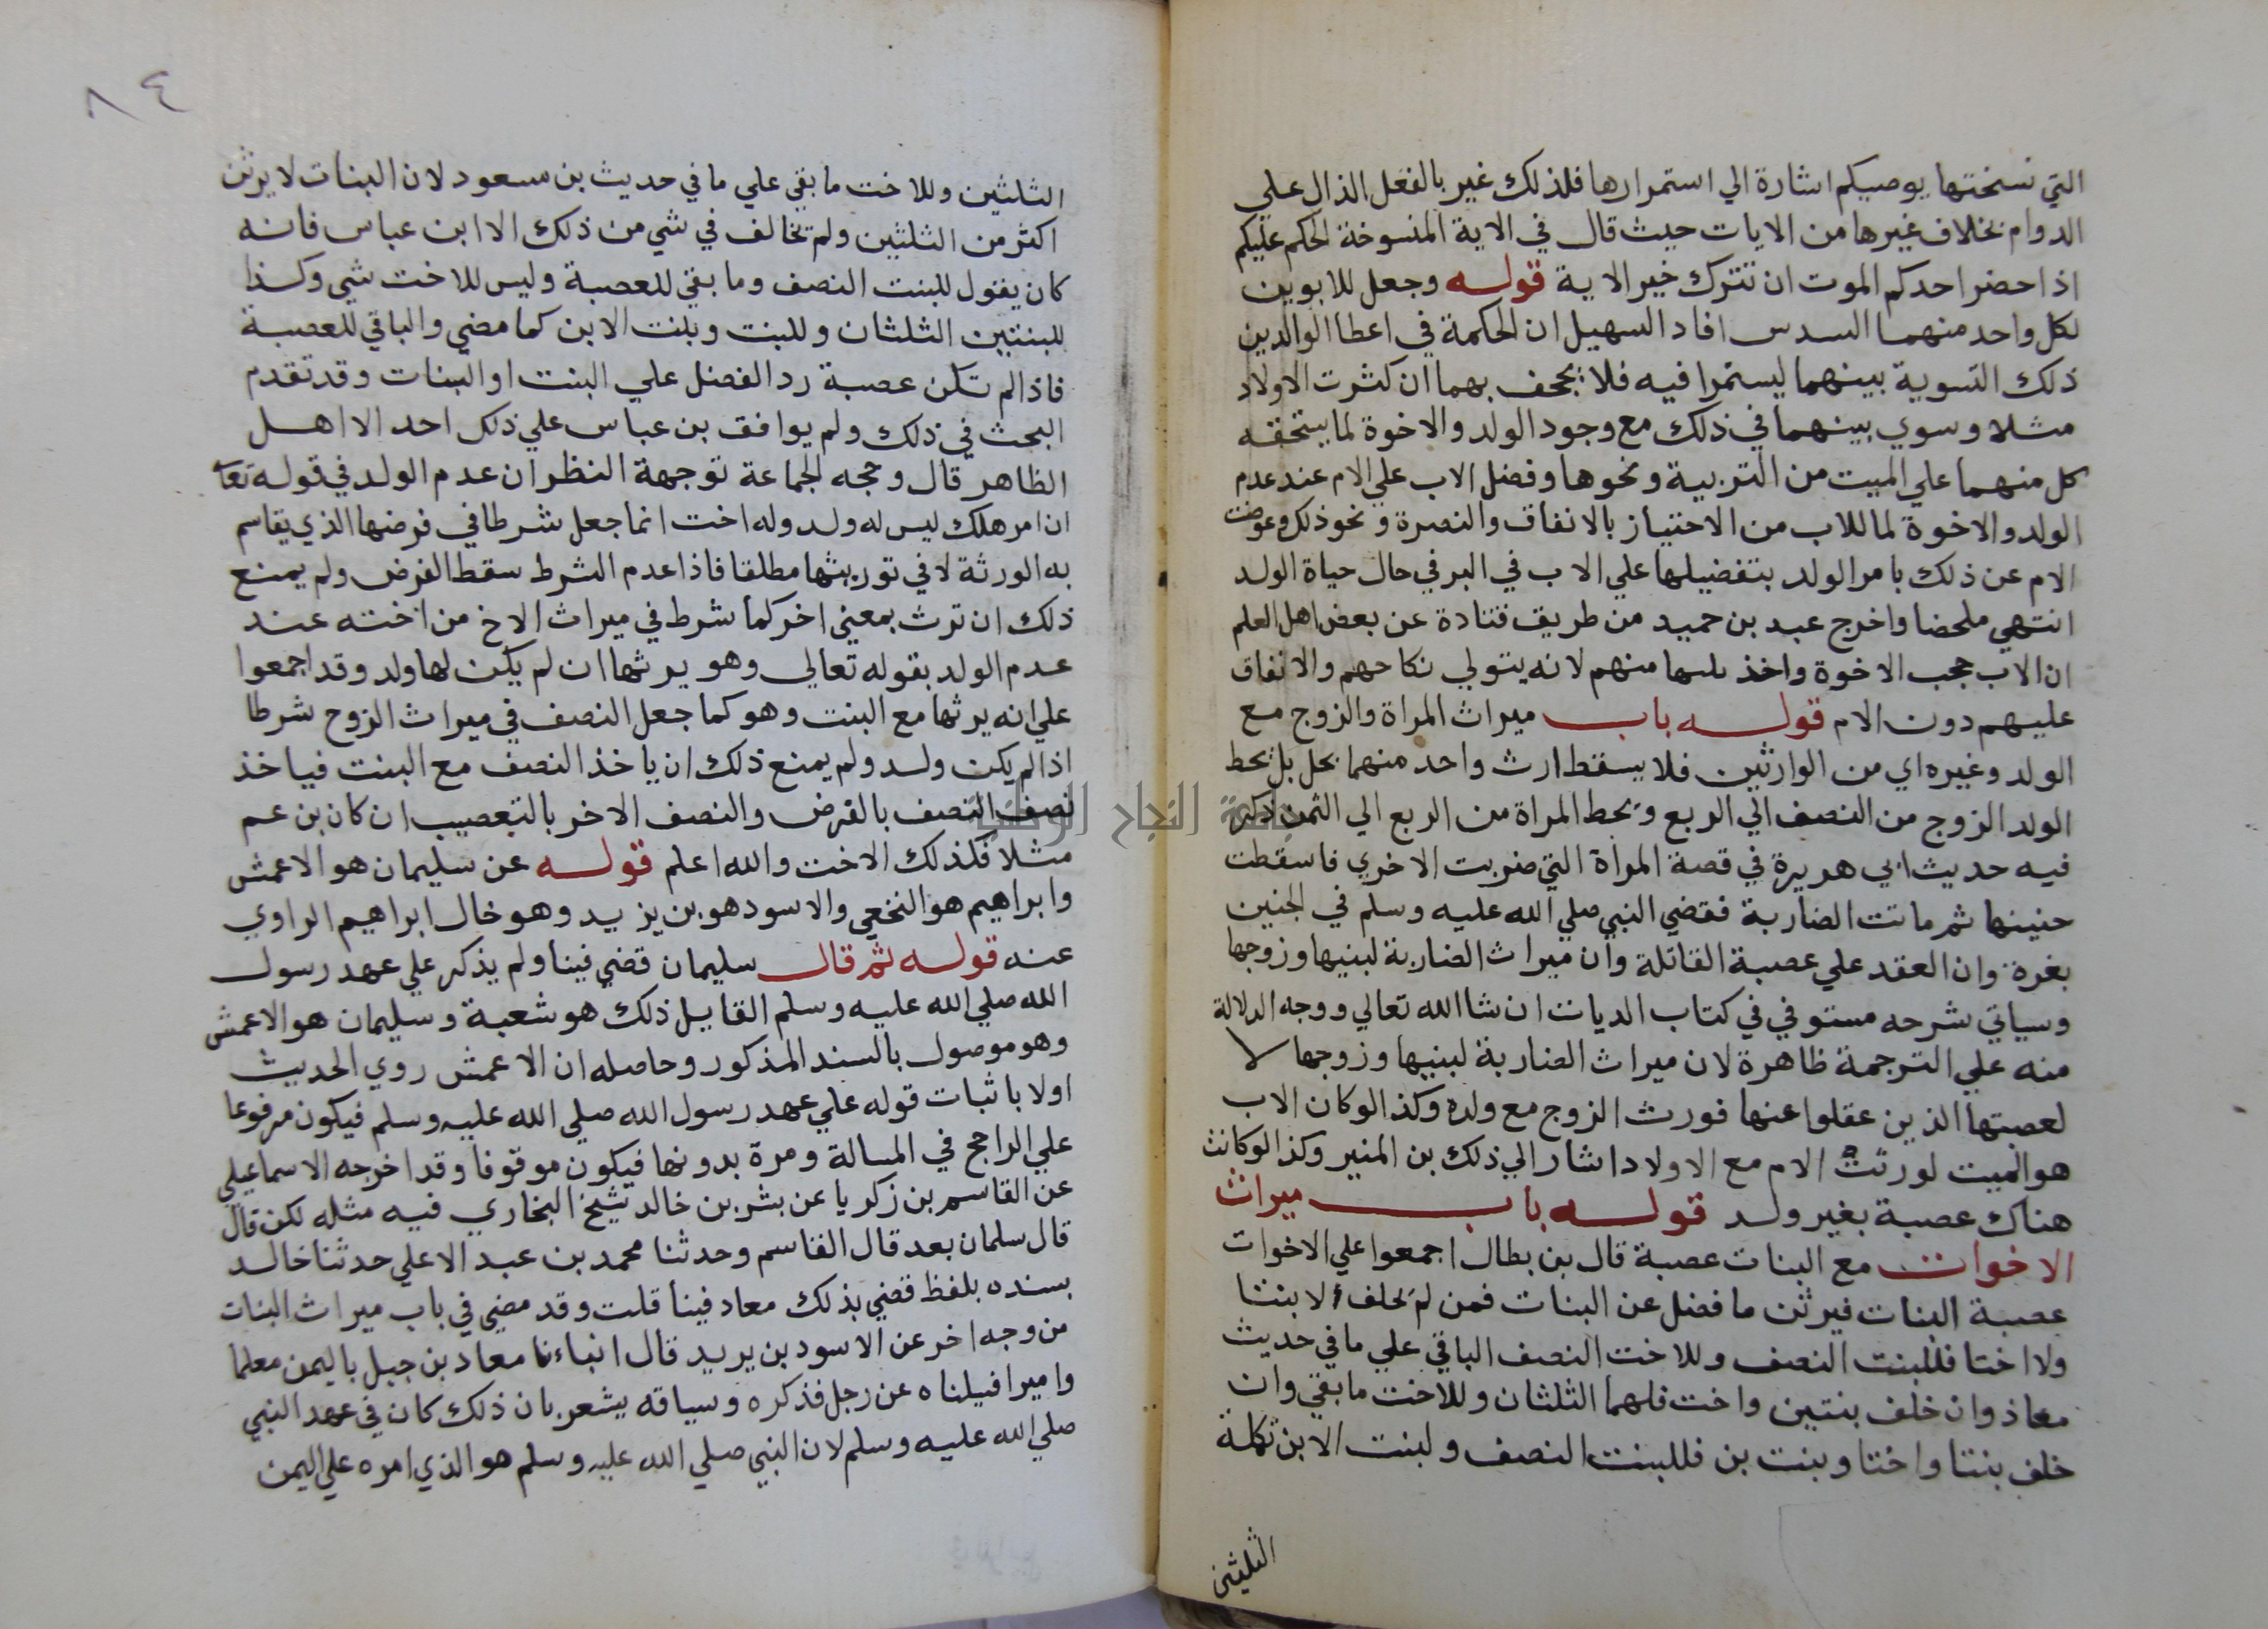 التي نسختها يوصيكم اشارة الي استمرارها فلذلك غير بالفعل الذال علي
الدوام بخلاف غيرها من الايات حيث قال في الاية المنسوخة الحكم عليكم
اذا حضر احدكم الموت ان تترك خير الاية قوله وجعل للابوين
لكل واحد منهما السدس افاد السهيل ان الحكمة في اعطا الوالدين
ذلك التسوية بينهما ليستمرا فيه فلا يجحف بهما ان كثرت الاولاد
مثلا وسوي بينهما في ذلك مع وجود الولد والاخوة لما يستحقه
كل منهما علي الميت من التربية ونحوها وفضل الاب علي الام عند عدم
الولد والاخوة لما للاب من الاحتياز بالانفاق والنصرة ونحو ذلك وعوضت
الام عن ذلك بامر الولد بتفضيلها علي الاب في البر في حال حياة الولد
انتهي ملخضا واخرج عبد بن حميد من طريق قتادة عن بعض اهل العلم
ان الاب حجب الاخوة واخذ منهم لانه يتولي نكاحهم والانفاق
عليهم دون الام قوله باب ميراث المراة والزوج مع
الولد وغيره اي من الوارثين فلا يسقط ارث واحد منهما بحل بل يحط
الولد الزوج من النصف الي الربع ويحط المراة من الربع الي الثمن ذكر
فيه حديث ابي هريرة في قصة المراة التي ضربت الاخري فاسقطت
جنينها ثم ماتت الضاربة فقضي النبي صلي الله عليه وسلم في الجنين
بغرة وان العقد علي عصبة القاتلة وان ميراث الضاربة لبنيها وزوجها
وسياتي شرحه مستوفي في كتاب الديات ان شا الله تعالي ووجه الدلالة
منه علي الترجمة ظاهرة لان ميراث الضاربة لبنيها وزوجها لا
لعصبتها الذين عقلوا عنها فورث الزوج مع ولده وكذا لو كان الاب
هو الميت لورثت الام مع الاولاد اشار الي ذلك بن المنير وكذا لو كانت
هناك عصبة بغير ولد قوله باب ميراث
الاخوات مع البنات عصبة قال بن بطال اجمعوا علي الاخوات
عصبة البنات فيرثن ما فضل عن البنات فمن لم يخلف الا بنتا
ولا اختا فللبنت النصف وللاخت النصف الباقي علي ما في حديث
معاذ وان خلف بنتين واخت فلهما الثلثان وللاخت ما بقي وان
خلف بنتا واختا وبنت بن فللبنت النصف ولبنت الابن تكملة
الثلثين
٨٤
الثلثين وللاخت ما بقي علي ما في حديث بن مسعود لان البنات لا يرثن
اكثر من الثلثين ولم يخالف في شي من ذلك الا ابن عباس فانه
كان يقول للبنت النصف وما بقي للعصبة وليس للاخت شي وكذا
للبنتين الثلثان وللبنت وبنت الابن كما مضي والباقي للعصبة
فاذا لم تكن عصبة رد الفضل علي البنت او البنات وقد تقدم
البحث في ذلك ولم يوافق بن عباس علي ذلك احد الا اهل
الظاهر قال وحجه الجماعة توجهة النظر ان عدم الولد في قوله تعا
ان امر هلك ليس له ولد وله اخت انما جعل شرطا في فرضها الذي يقاسم
به الورثة لا في توريثها مطلقا فاذا عدم الشرط سقط الفرض ولم يمنع
ذلك ان ترث بمعني اخر كما شرط في ميراث الاخ من اخته عند
عدم الولد بقوله تعالي وهو يرثها ان لم يكن لها ولد وقد اجمعوا
علي انه يرثها مع البنت وهو كما جعل النصف في ميراث الزوج شرطا
اذا لم يكن ولد ولم يمنع ذلك ان ياخذ النصف مع البنت فياخذ
نصف النصف بالفرض والنصف الاخر بالتعصيب ان كان بن عم
مثلا فكذلك الاخت والله اعلم قوله عن سليمان هو الاعمش
وابراهيم هو النخعي والاسود هو بن يزيد وهو خال ابراهيم الراوي
عنه قوله ثم قال سليمان قضي فينا ولم يذكر علي عهد رسول
الله صلي الله عليه وسلم القايل ذلك هو شعبة وسليمان هو الاعمش
وهو موصول بالسند المذكور وحاصله ان الاعمش روي الحديث
اولا باثبات قوله علي عهد رسول الله صلي الله عليه وسلم فيكون مرفوعا
علي الراجح في المسالة ومرة بدونها فيكون موقوفا وقد اخرجه الاسماعيلي
عن القاسم بن زكريا عن بشر بن خالد شيخ البخاري فيه مثله لكن قال
قال سلمان بعد قال القاسم وحدثنا محمد بن عبد الاعلي حدثنا خالد
بسنده بلفظ قضي بذلك معاد فينا قلت وقد مضي في باب ميراث البنات
من وجه اخر عن الاسود بن يريد قال انباءنا معاد بن جبل باليمن معلما
واميرا فيلناه عن رجل فذكره وسياقه يشعر بان ذلك كان في عهد النبي
صلي الله عليه وسلم لان النبي صلي الله عليه وسلم هو الذي امره علي اليمن
جامعة النجاح الوطنية